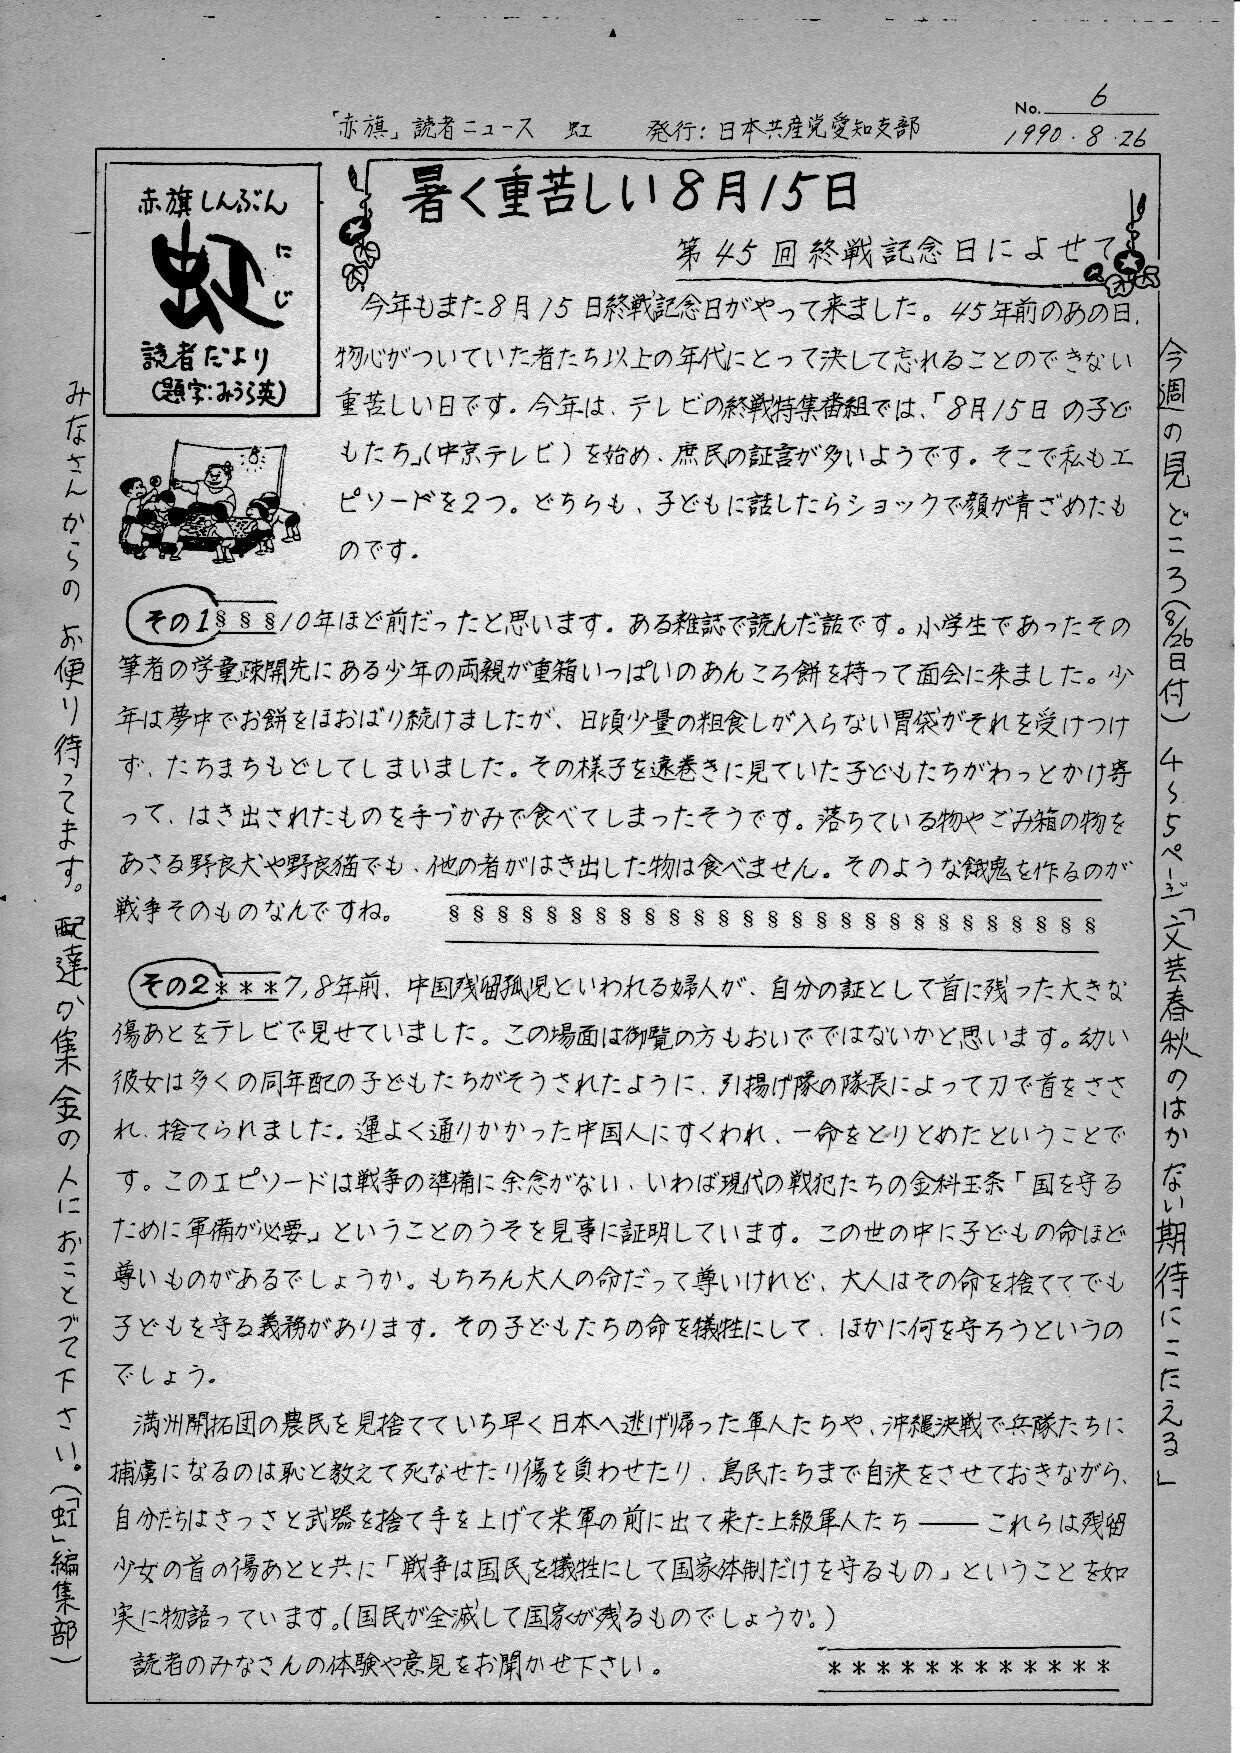 No. 6
1990.8.26
「赤旗」読者ニュース 虹 発行:日本共産党愛知支部
赤旗しんぶん
虹
にじ
読者だより
(題字:みうら英)
暑く重苦しい8月15日
第45回終戦記念日によせて
今年もまた8月15日終戦記念日がやって来ました。45年前のあの日、
物心がついていた者たち以上の年代にとって決して忘れることのできない
重苦しい日です。今年は、テレビの終戦特集番組では、「8月15日の子ど
もたち」(中京テレビ)を始め、庶民の証言が多いようです。そこで私もエ
ピソードを2つ。どちらも、子どもに話したらショックで顔が青ざめたも
のです。
その1§§§10年ほど前だったと思います。ある雑誌で読んだ話です。小学生であったその
筆者の学童疎開先にある少年の両親が重箱いっぱいのあんころ餅を持って面会に来ました。少
年は夢中でお餅をほおばり続けましたが、日頃少量の粗食しが入らない胃袋がそれを受けつけ
ず、たちまちもどしてしまいました。その様子を遠巻きに見ていた子どもたちがわっとかけ寄
って、はき出されたものを手づかみで食べてしまったそうです。落ちている物やごみ箱の物を
あさる野良犬や野良猫でも、他の者がはき出した物は食べません。そのような餓鬼を作るのが
戦争そのものなんですね。 §§§§§§§§§§§§§§§§§§§§§§§§§§§
その2***7,8年前、中国残留孤児といわれる婦人が、自分の証として首に残った大きな
傷あとをテレビで見せていました。この場面は御覧の方もおいでではないかと思います。幼い
彼女は多くの同年配の子どもたちがそうされたように、引揚げ隊の隊長によって刀で首をささ
れ、捨てられました。運よく通りかかった中国人にすくわれ、一命をとりとめたということで
す。このエピソードは戦争の準備に余念がない、いわば現代の戦犯たちの金科玉条「国を守る
ために軍備が必要」ということのうそを見事に証明しています。この世の中に子どもの命ほど
尊いものがあるでしょうか。もちろん大人の命だって尊いけれど、大人はその命を捨ててでも
子どもを守る義務があります。その子どもたちの命を犠牲にして、ほかに何を守ろうというの
でしょう。
満州開拓団の農民を見捨てていち早く日本へ逃げ帰った軍人たちや、沖縄決戦で兵隊たちに
捕虜になるのは恥と教えて死なせたり傷を負わせたり、島民たちまで自決をさせておきながら、
自分たちはさっさと武器を捨て手を上げて米軍の前に出て来た上級軍人たち――これらは残留
少女の首の傷あとと共に「戦争は国民を犠牲にして国家体制だけを守るもの」ということを如
実に物語っています。(国民が全滅して国家が残るものでしょうか。)
読者のみなさんの体験や意見をお聞かせ下さい。 ************
今週の見どころ(8/26日付)4〜5ページ「文芸春秋のはかない期待にこたえる」
みなさんからのお便り待ってます。配達か集金の人におことづて下さい。(「虹」編集部)